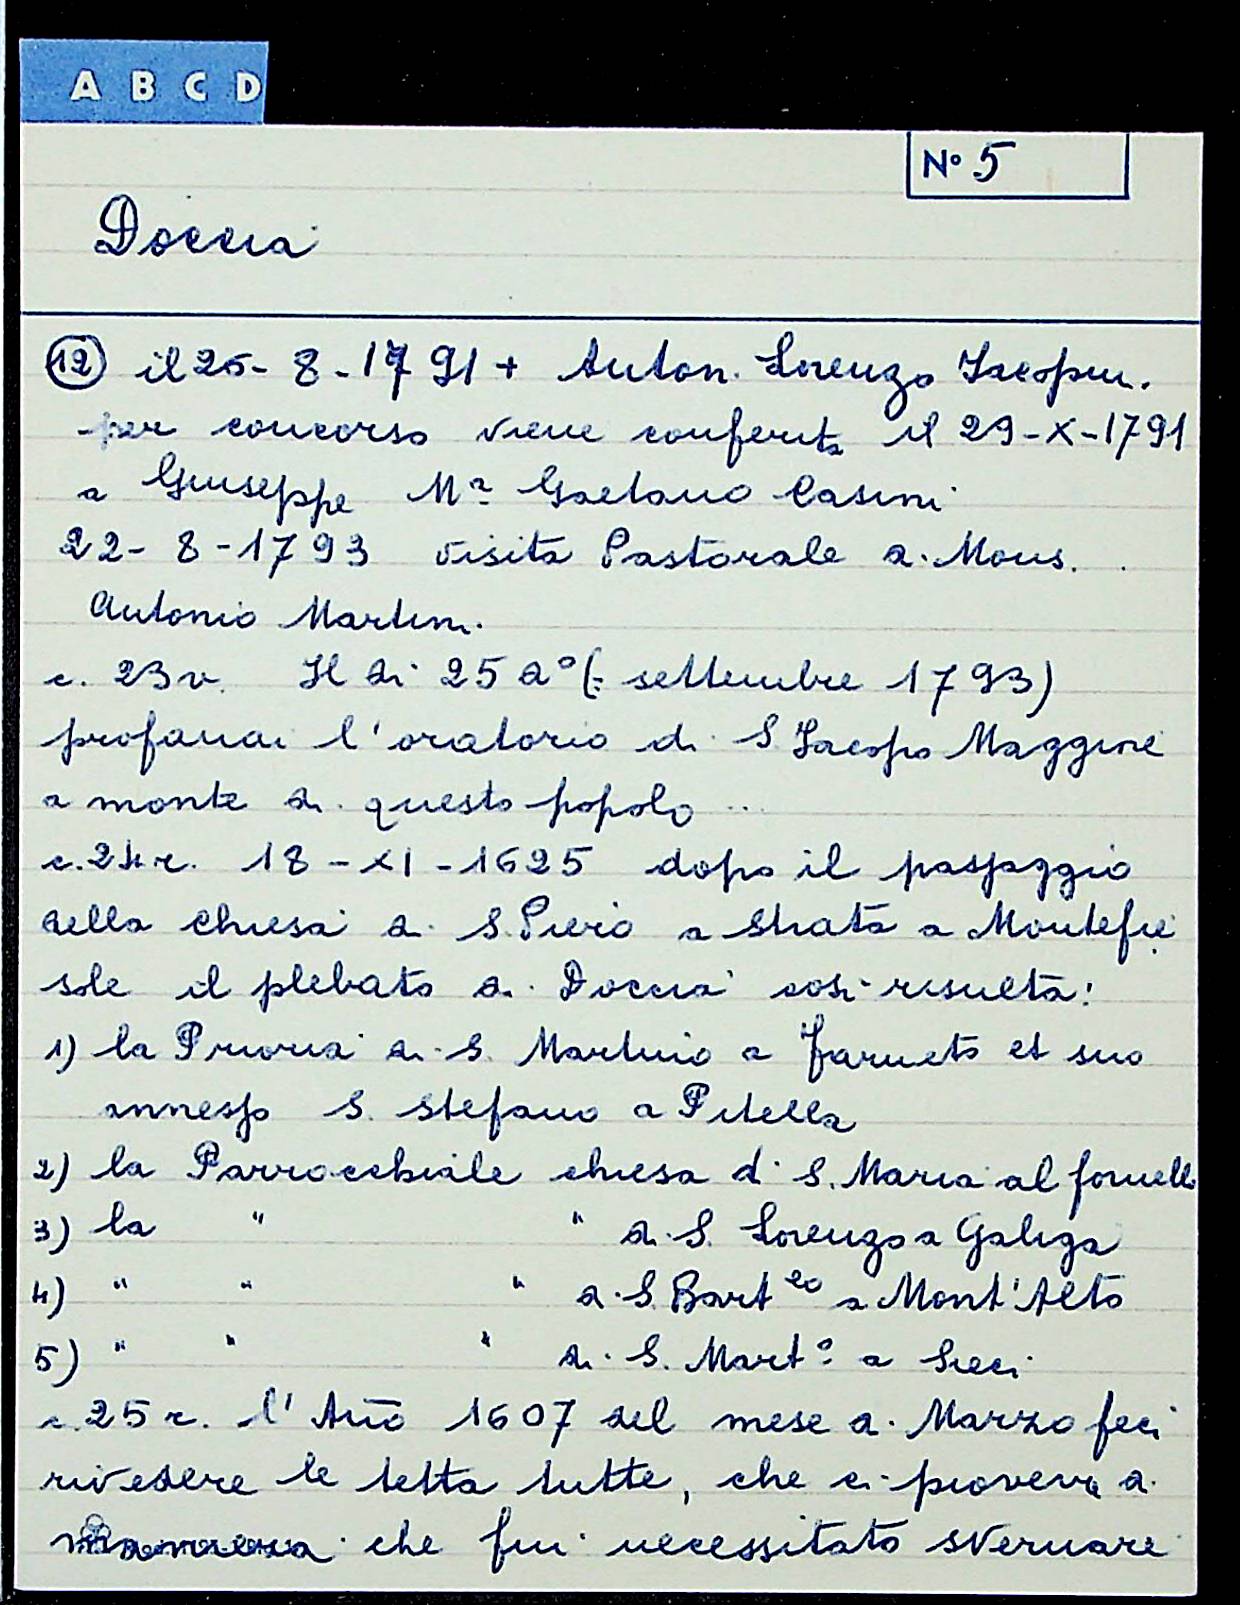 A B C D
N° 5
Doccia
12 il 25-8-1791 + Anton. Lorenzo Jacopin.
per concorso viene conferita il 29-X-1791
a Giuseppe Mª Gaetano Casini
22-8-1793 visita Pastorale di Mons.
Antonio Martini.
c. 23v. Il di 25 dº (= settembre 1793)
profanai l'oratorio di S. Jacopo Maggiore
a monte di questo popolo ...
c. 24r. 18-XI-1625 dopo il passaggio
della chiesa di S. Piero a Strata a Montefie
sole il plebato di Doccia così risulta:
1) la Prioria di S. Martino a Farneto et suo
annesso S. Stefano a Pitella
2) la Parrocchiale chiesa di S. Maria al fornello
3) la " " di S. Lorenzo a Galiga
4) " " " di S. Bartleo a Mont'Alto
5) " " " di S. Martº a Sieci
c. 25r. l'Año 1607 del mese di Marzo feci
rivedere le tetta tutte, che ci pioveva di
maniera che fui necessitato svernare